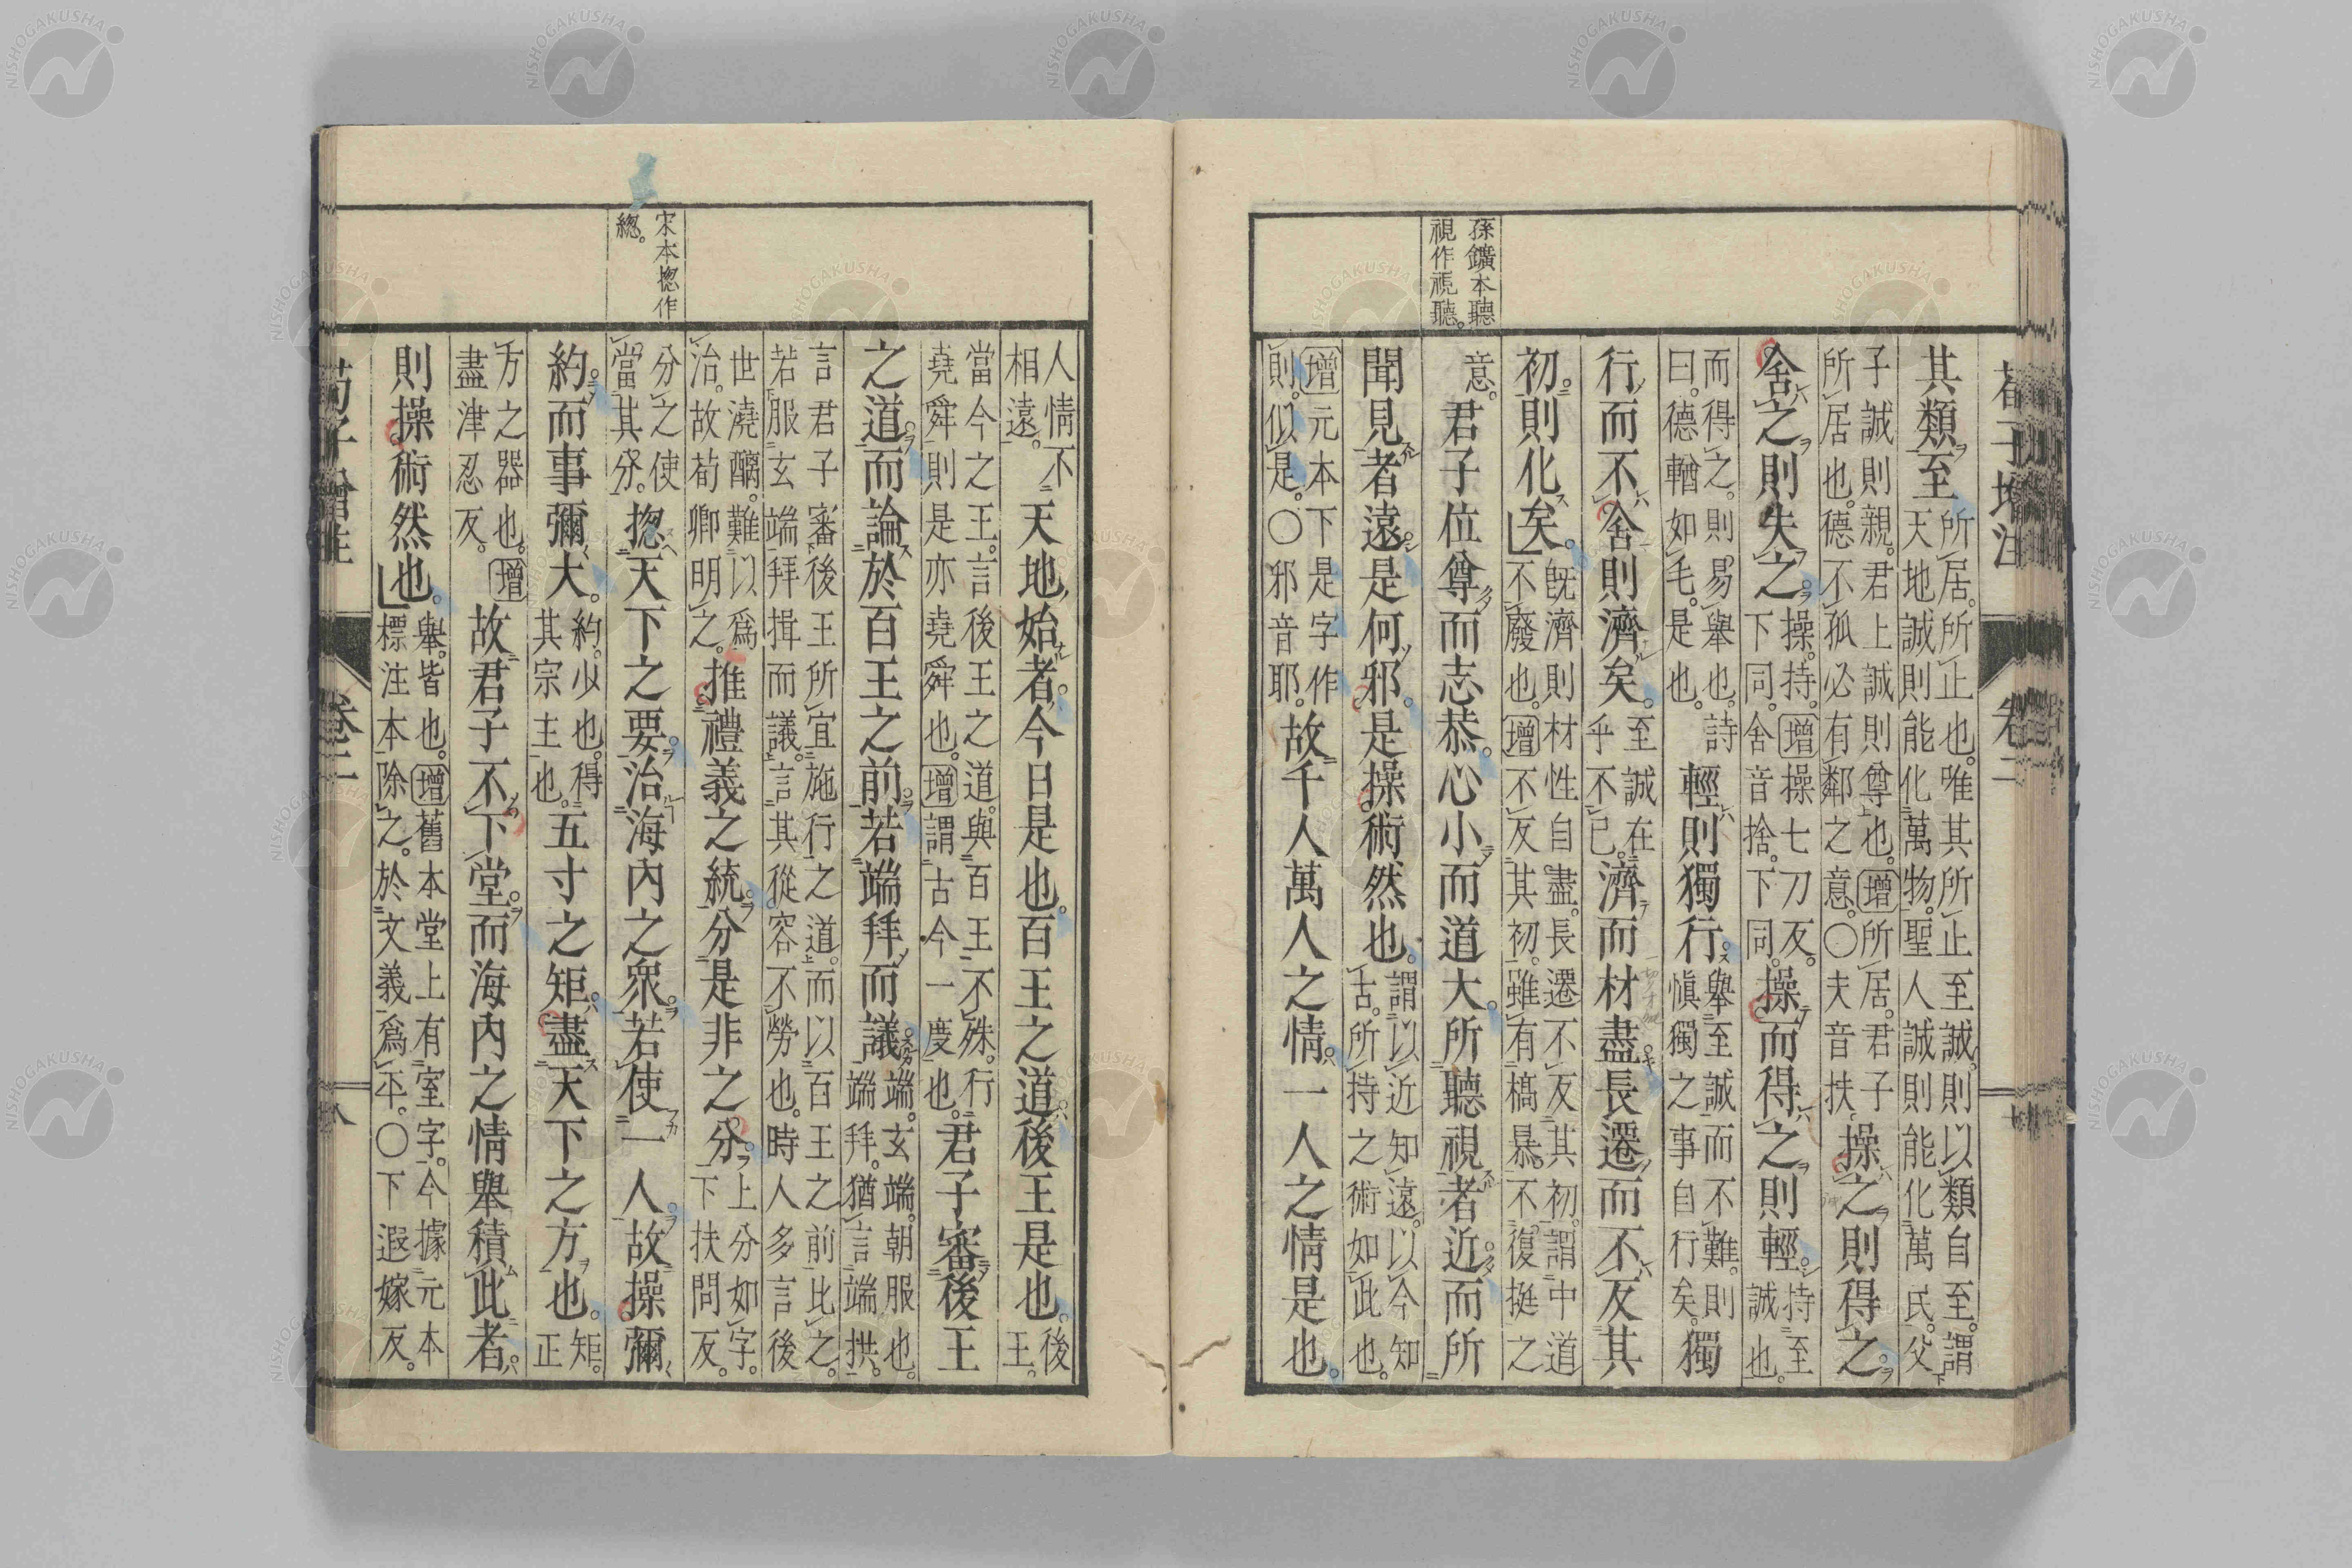 荀子增注
卷二
其類至所居所止也唯其所止至誠則以類自至謂
天地誠則能化萬物聖人誠則能化萬民父
子誠則親君上誠則尊也增所居君子
所居也德不孤必有鄰之意○夫音扶操之則得之
舍之則失之操持增操七刀反
下同舍音捨下同操而得之則輕持至
誠也
而得之則易舉也詩
曰德輶如毛是也輕則獨行舉至誠而不難則
慎獨之事自行矣獨
行而不舍則濟矣至誠在
乎不已濟而材盡長遷而不反其
初則化矣既濟則材性自盡長遷不反其初謂中道
不廢也增不反其初雖有槁暴不復挺之
意君子位尊而志恭心小而道大所聽視者近而所
孫鑛本聽
視作視聽
聞見者遠是何邪是操術然也謂以近知遠以今知
古所持之術如此也
增元本下是字作
則似是○邪音耶故千人萬人之情一人之情是也
人情不
相遠天地始者今日是也百王之道後王是也後
王
當今之王言後王之道與百王不殊行
堯舜則是亦堯舜也增謂古今一度也君子審後王
之道而論於百王之前若端拜而議端玄端朝服也
端拜猶言端拱
言君子審後王所宜施行之道而以百王之前比之
若服玄端拜揖而議言其從容不勞也時人多言後
世澆醨難以爲
治故荀卿明之推禮義之統分是非之分上分如字
下扶問反
宋本揔作
總
分之使
當其分揔天下之要治海內之衆若使一人故操彌
約而事彌大約少也得
其宗主也五寸之矩盡天下之方也矩
正
方之器也增
盡津忍反故君子不下堂而海內之情舉積此者
則操術然也舉皆也增舊本堂上有室字今據元本
標注本除之於文義爲平○下遐嫁反
荀子增注
卷二
八